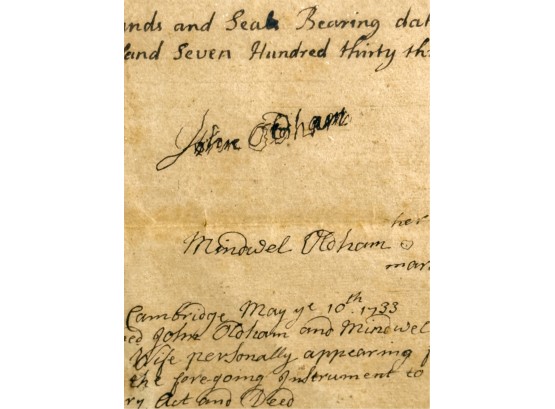 nds and Seals Bearing dat
sand Seven Hundred thirty th
John Oldham
her
Mindwel Oldham
mar
Cambridge May ye 10th 1733
ed John Oldham and Mindwel
Wife personally appearing
the foregoing Instrument to
ry Act and Deed